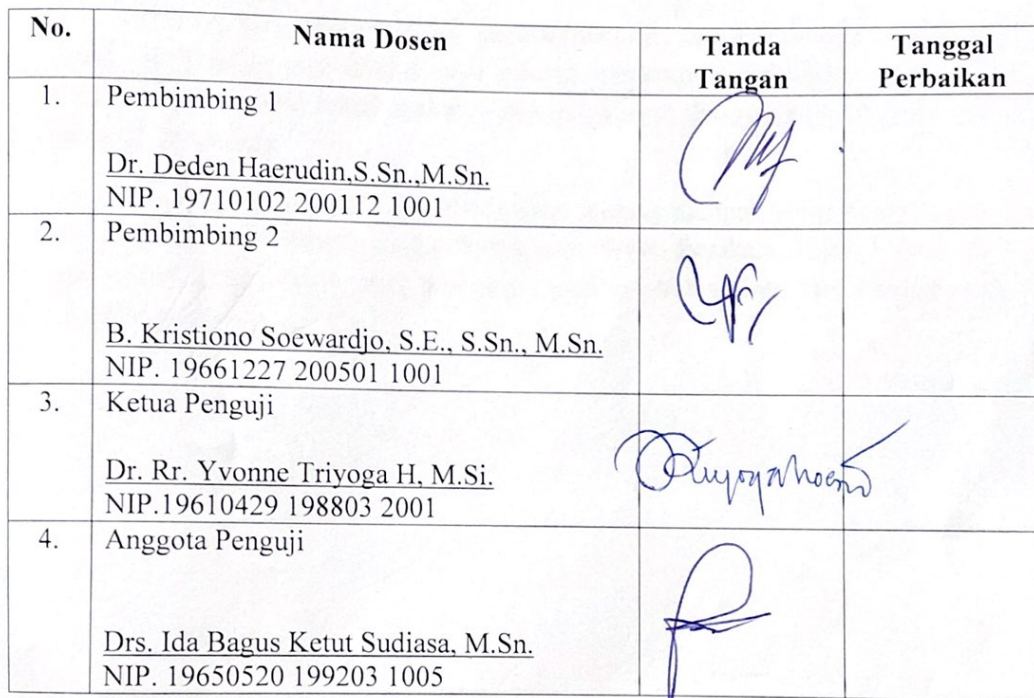 No. Nama Dosen Tanda Tangan Tanggal Perbaikan
1. Pembimbing 1
Dr. Deden Haerudin,S.Sn.,M.Sn.
NIP. 19710102 200112 1001
2. Pembimbing 2
B. Kristiono Soewardjo, S.E., S.Sn., M.Sn.
NIP. 19661227 200501 1001
3. Ketua Penguji
Dr. Rr. Yvonne Triyoga H, M.Si.
NIP.19610429 198803 2001
4. Anggota Penguji
Drs. Ida Bagus Ketut Sudiasa, M.Sn.
NIP. 19650520 199203 1005